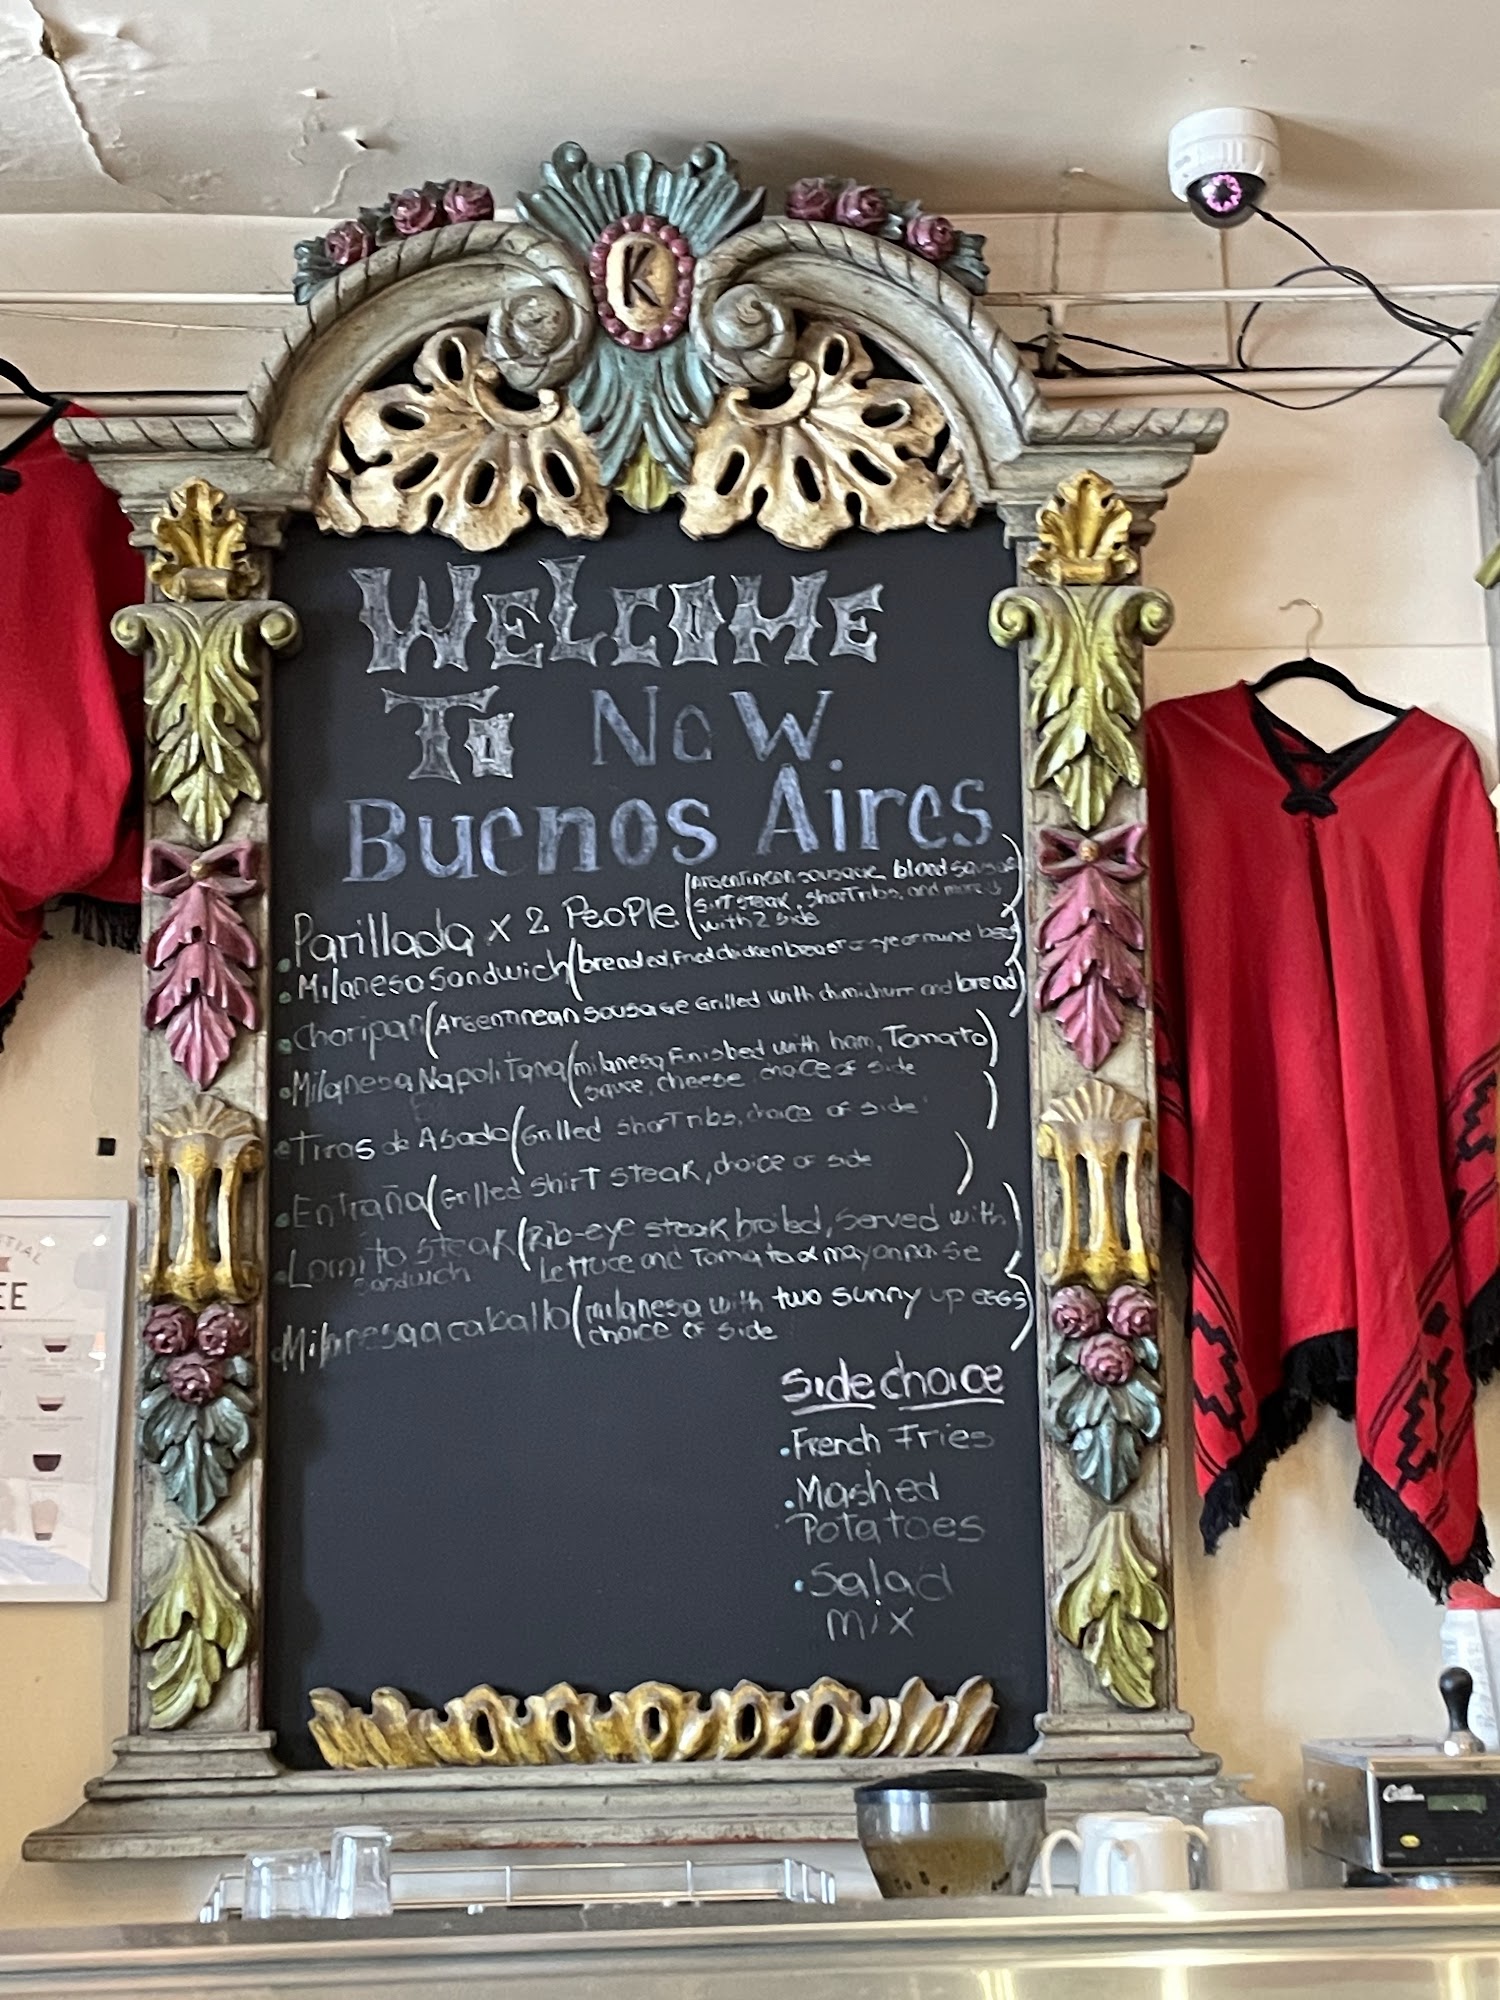 K
WELCOME
To NeW.
Buenos Aires
• Parillada x 2 PeoPle (Argentinean sousage, blood sousage
sirt steak, short ribs, and more
with 2 side
• Milanesa Sandwich (breaded, Fried chicken breast or eye of round beef)
• Choripan (Argentinean sousage Grilled with chimichurr and bread)
• Milanesa Napolitana (milanesa finished with ham, Tomato)
sauce, cheese, choice of side
• Tiras de Asado (Grilled short ribs, choice of side)
• Entraña (Grilled shirt steak, choice of side)
• Lomito steak (Rib-eye steak broiled, served with)
sandwich Lettuce and Tomato & mayonnaise
• Milanesa a caballo (milanesa with two sunny up eggs)
choice of side
Side choice
• French Fries
• Mashed
Potatoes
• Salad
mix